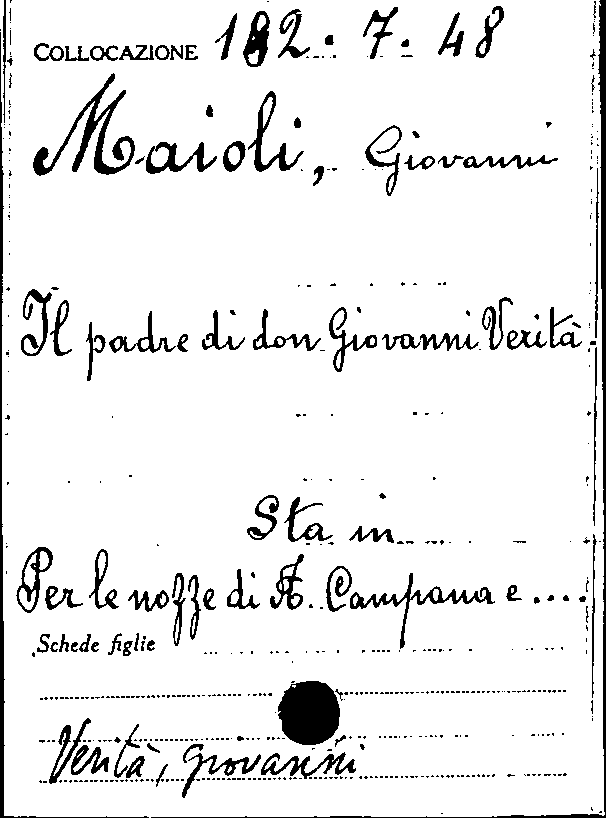 COLLOCAZIONE 182.7.48
Maioli, Giovanni
Il padre di don Giovanni Verità.
Sta in
Per le nozze di A. Campana e ....
Schede figlie
Verità, Giovanni